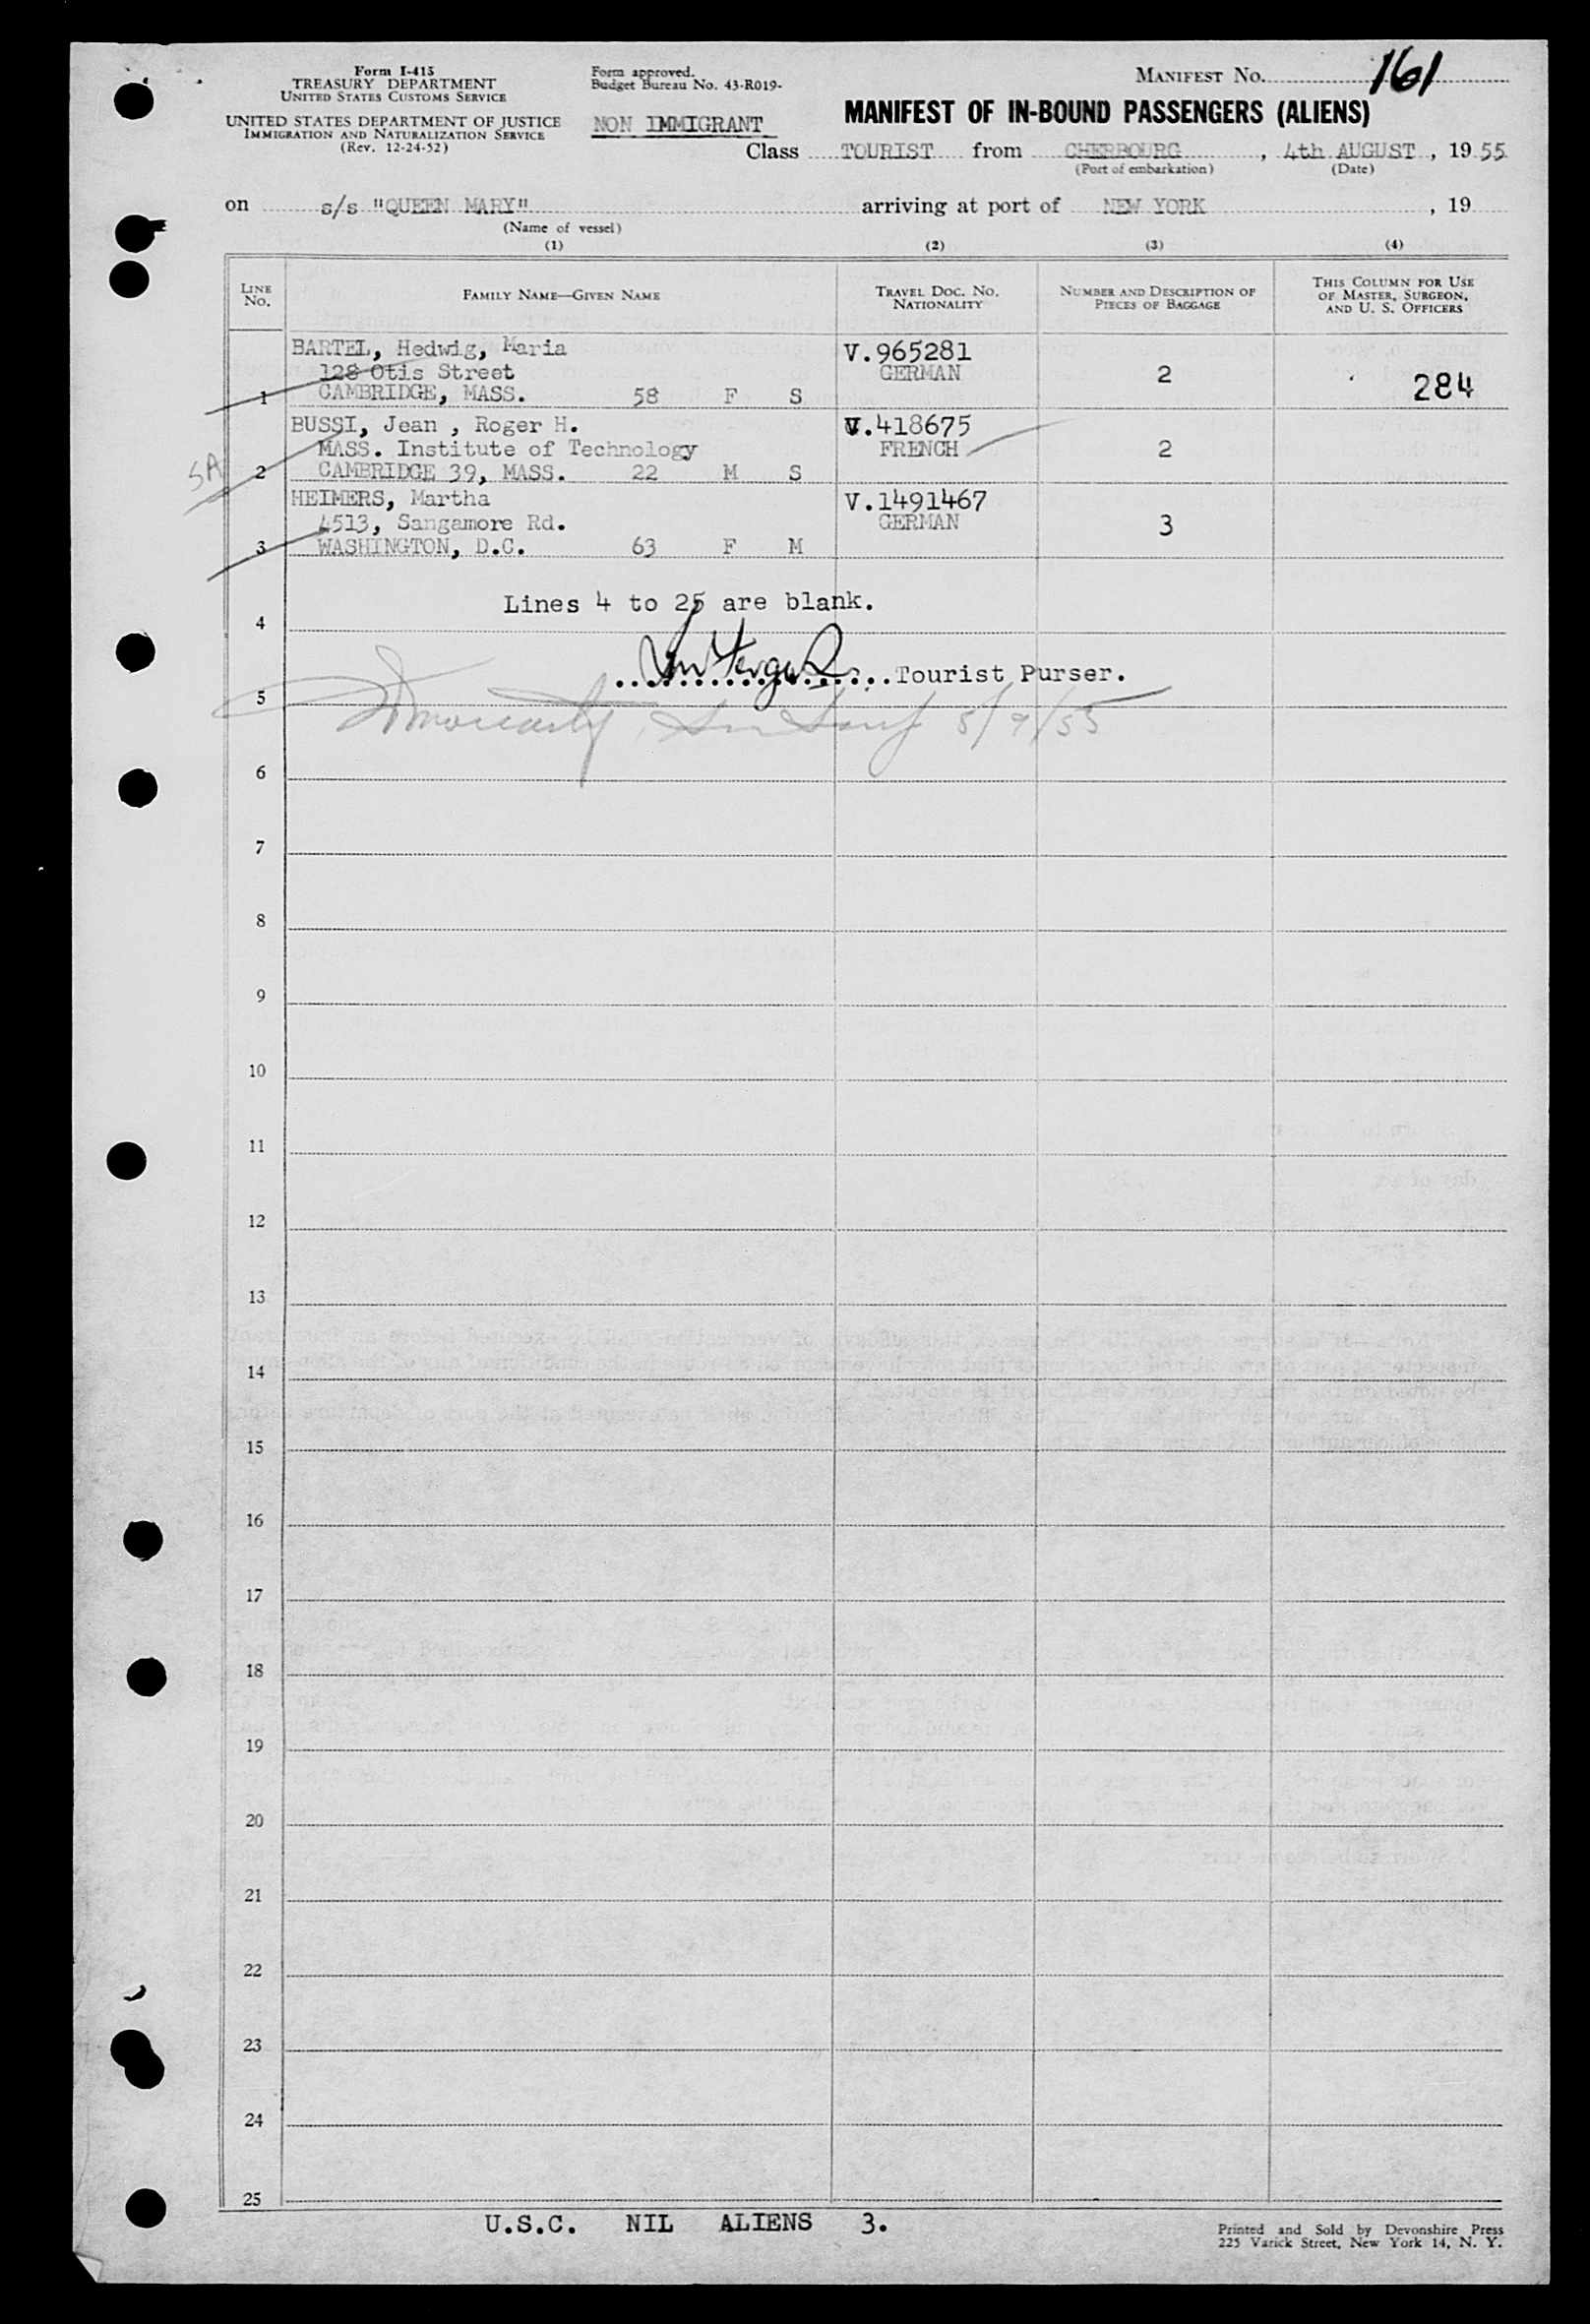 Form I-415
TREASURY DEPARTMENT
UNITED STATES CUSTOMS SERVICE
UNITED STATES DEPARTMENT OF JUSTICE
IMMIGRATION AND NATURALIZATION SERVICE
(Rev. 12-24-52)
Form approved.
Budget Bureau No. 43-R019-
NON IMMIGRANT
MANIFEST NO. 161
MANIFEST OF IN-BOUND PASSENGERS (ALIENS)
Class TOURIST from CHERBOURG, 4th AUGUST, 1955
(Port of embarkation) (Date)
on s/s "QUEEN MARY" arriving at port of NEW YORK, 19
(Name of vessel)
(1) (2) (3) (4)
LINE NO.
FAMILY NAME—GIVEN NAME
TRAVEL DOC. NO.
NATIONALITY
NUMBER AND DESCRIPTION OF
PIECES OF BAGGAGE
THIS COLUMN FOR USE
OF MASTER, SURGEON,
AND U. S. OFFICERS
BARTEL, Hedwig, Maria V.965281
128 Otis Street GERMAN 2
1 CAMBRIDGE, MASS. 58 F S 284
BUSSI, Jean , Roger H. V.418675
MASS. Institute of Technology FRENCH 2
SA 2 CAMBRIDGE 39, MASS. 22 M S
HEIMERS, Martha V.1491467
4513, Sangamore Rd. GERMAN 3
3 WASHINGTON, D.C. 63 F M
Lines 4 to 25 are blank.
4
Tourist Purser.
5
8/9/55
6
7
8
9
10
11
12
13
14
15
16
17
18
19
20
21
22
23
24
25
U.S.C. NIL ALIENS 3.
Printed and Sold by Devonshire Press
225 Varick Street, New York 14, N. Y.